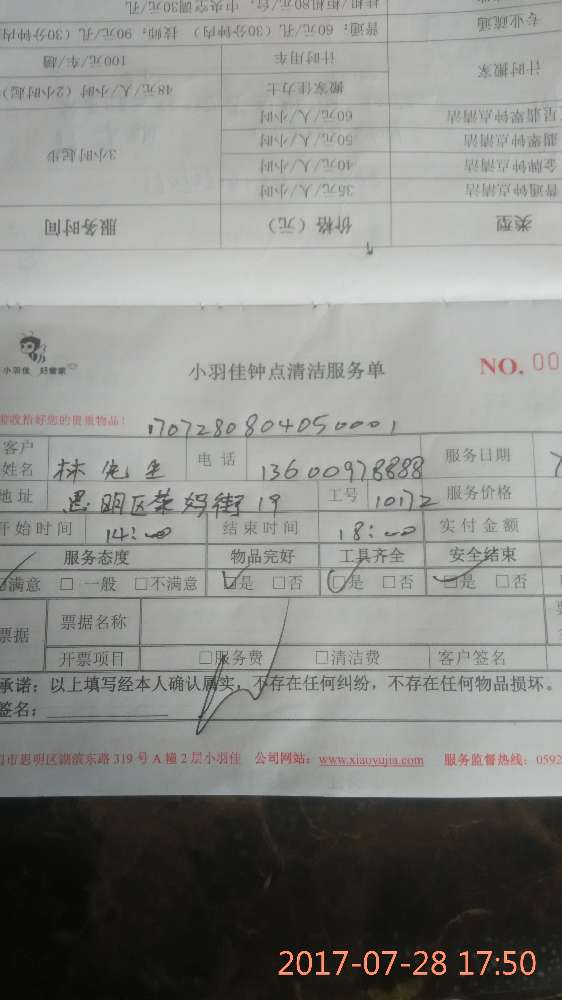 挂机/柜机80元/台，中央空调30元/孔
专业疏通 普通：60元/孔（30分钟内） 技师：90元/孔（30分钟内
计时搬家 计时用车 100元/车/趟
搬家佳力士 48元/人/小时（2小时起）
星翡翠钟点清洁 60元/人/小时
翡翠钟点清洁 50元/人/小时 3小时起步
金牌钟点清洁 40元/人/小时
普通钟点清洁 35元/人/小时
类型 价格（元） 服务时间
小羽佳 好管家
小羽佳钟点清洁服务单 NO. 00
收拾好您的贵重物品！ 1707280804050001
客户姓名 林先生 电话 13600978888 服务日期
地址 思明区 街19 工号 10172 服务价格
开始时间 14:00 结束时间 18:00 实付金额
服务态度 物品完好 工具齐全 安全结束
满意 □一般 □不满意 □是 □否 □是 □否 □是 □否
票据 票据名称
开票项目 □服务费 □清洁费 客户签名
承诺：以上填写经本人确认属实，不存在任何纠纷，不存在任何物品损坏。
签名：
市思明区湖滨东路319号A幢2层小羽佳 公司网站：www.xiaoyujia.com 服务监督热线：0592
2017-07-28 17:50